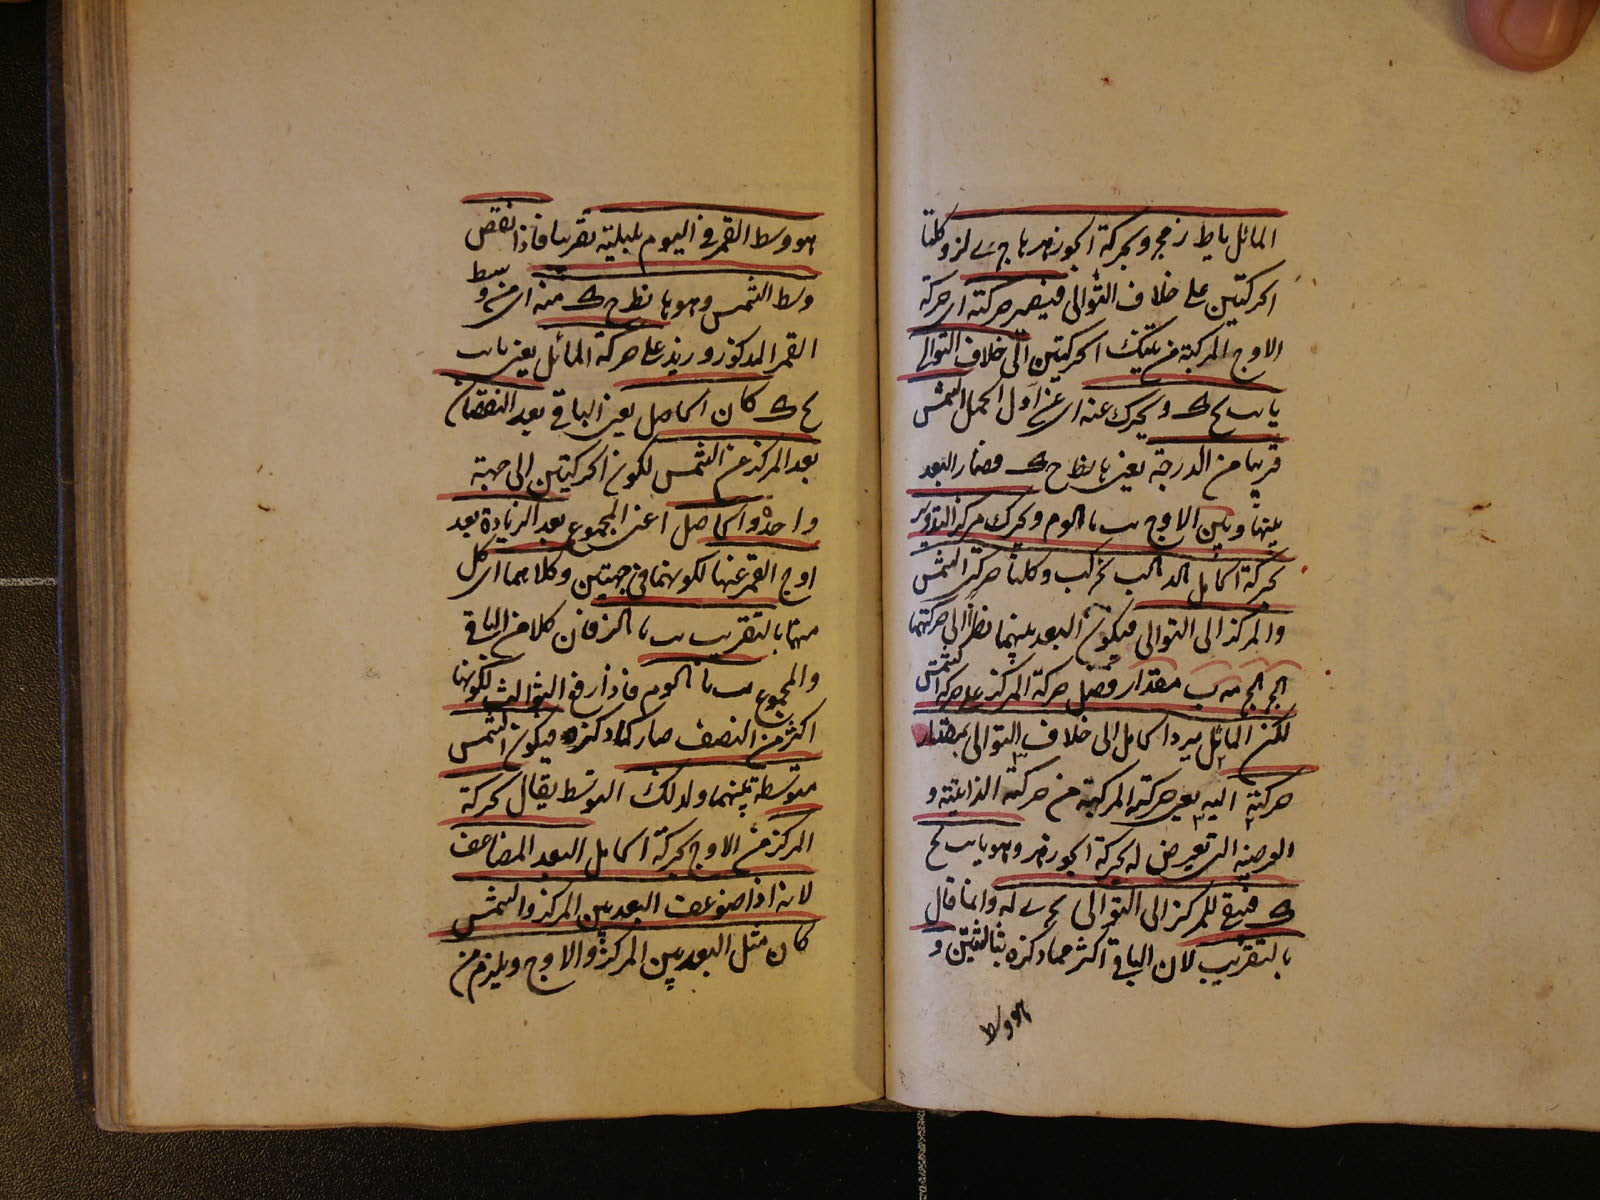 المائل يا ط ز مج وبحركة الجوزهر ها ج ى لز وكلتا
الحركتين على خلاف التوالى فيصير حركته اى حركة
الاوج المركبة من تينك الحركتين الى خلاف التوالى
يا يب يح ك ويحرك عنه اى عن اول الحمل الشمس
قريبا من الدرجة يعنى ها نط ح ك فصار البعد
بينها وبين الاوج يب يا الوم ويحرك مركز التدوير
بحركة الحامل الد الب نحر كب وكلتا حركتى الشمس
والمركز الى التوالى فيكون البعد بينهما نظرا الى حركتهما
مقدار فضل حركة المركز على حركة الشمس
لكن المائل يرد الحامل الى خلاف التوالى بمقدار
حركته اليه يعنى حركته المركبة من حركته الذاتية و
العرضية التى تعرض له بحركة الجوزهر وهو يا يب يح
ك فيبقى للمركز الى التوالى يح ى له وانما قال
بالتقريب لان الباقى اكثر مما ذكره بثالثتين و
هو وسط
هو وسط القمر فى اليوم بليلته تقريبا فاذا نقص
وسط الشمس وهو ها نط ح ك منه اى من وسط
القمر المذكور وزيد على حركة المائل يعنى يا يب
يح ك كان الحاصل يعنى الباقى بعد النقصان
بعد المركز عن الشمس لكون الحركتين الى جهة
واحدة والحاصل اعنى المجموع بعد الزيادة بعد
اوج القمر عنها لكونهما فى جهتين وكلاهما اى كل
منهما بالتقريب يب يا الز فان كلا من الباقى
والمجموع يب يا الوم فاذا رفع الثوالث لكونها
اكثر من النصف صار كما ذكره فيكون الشمس
متوسطة بينهما ولذلك التوسط يقال لحركة
المركز من الاوج بحركة الحامل البعد المضاعف
لانه اذا ضوعف البعد بين المركز والشمس
كان مثل البعد بين المركز والاوج ويلزم من